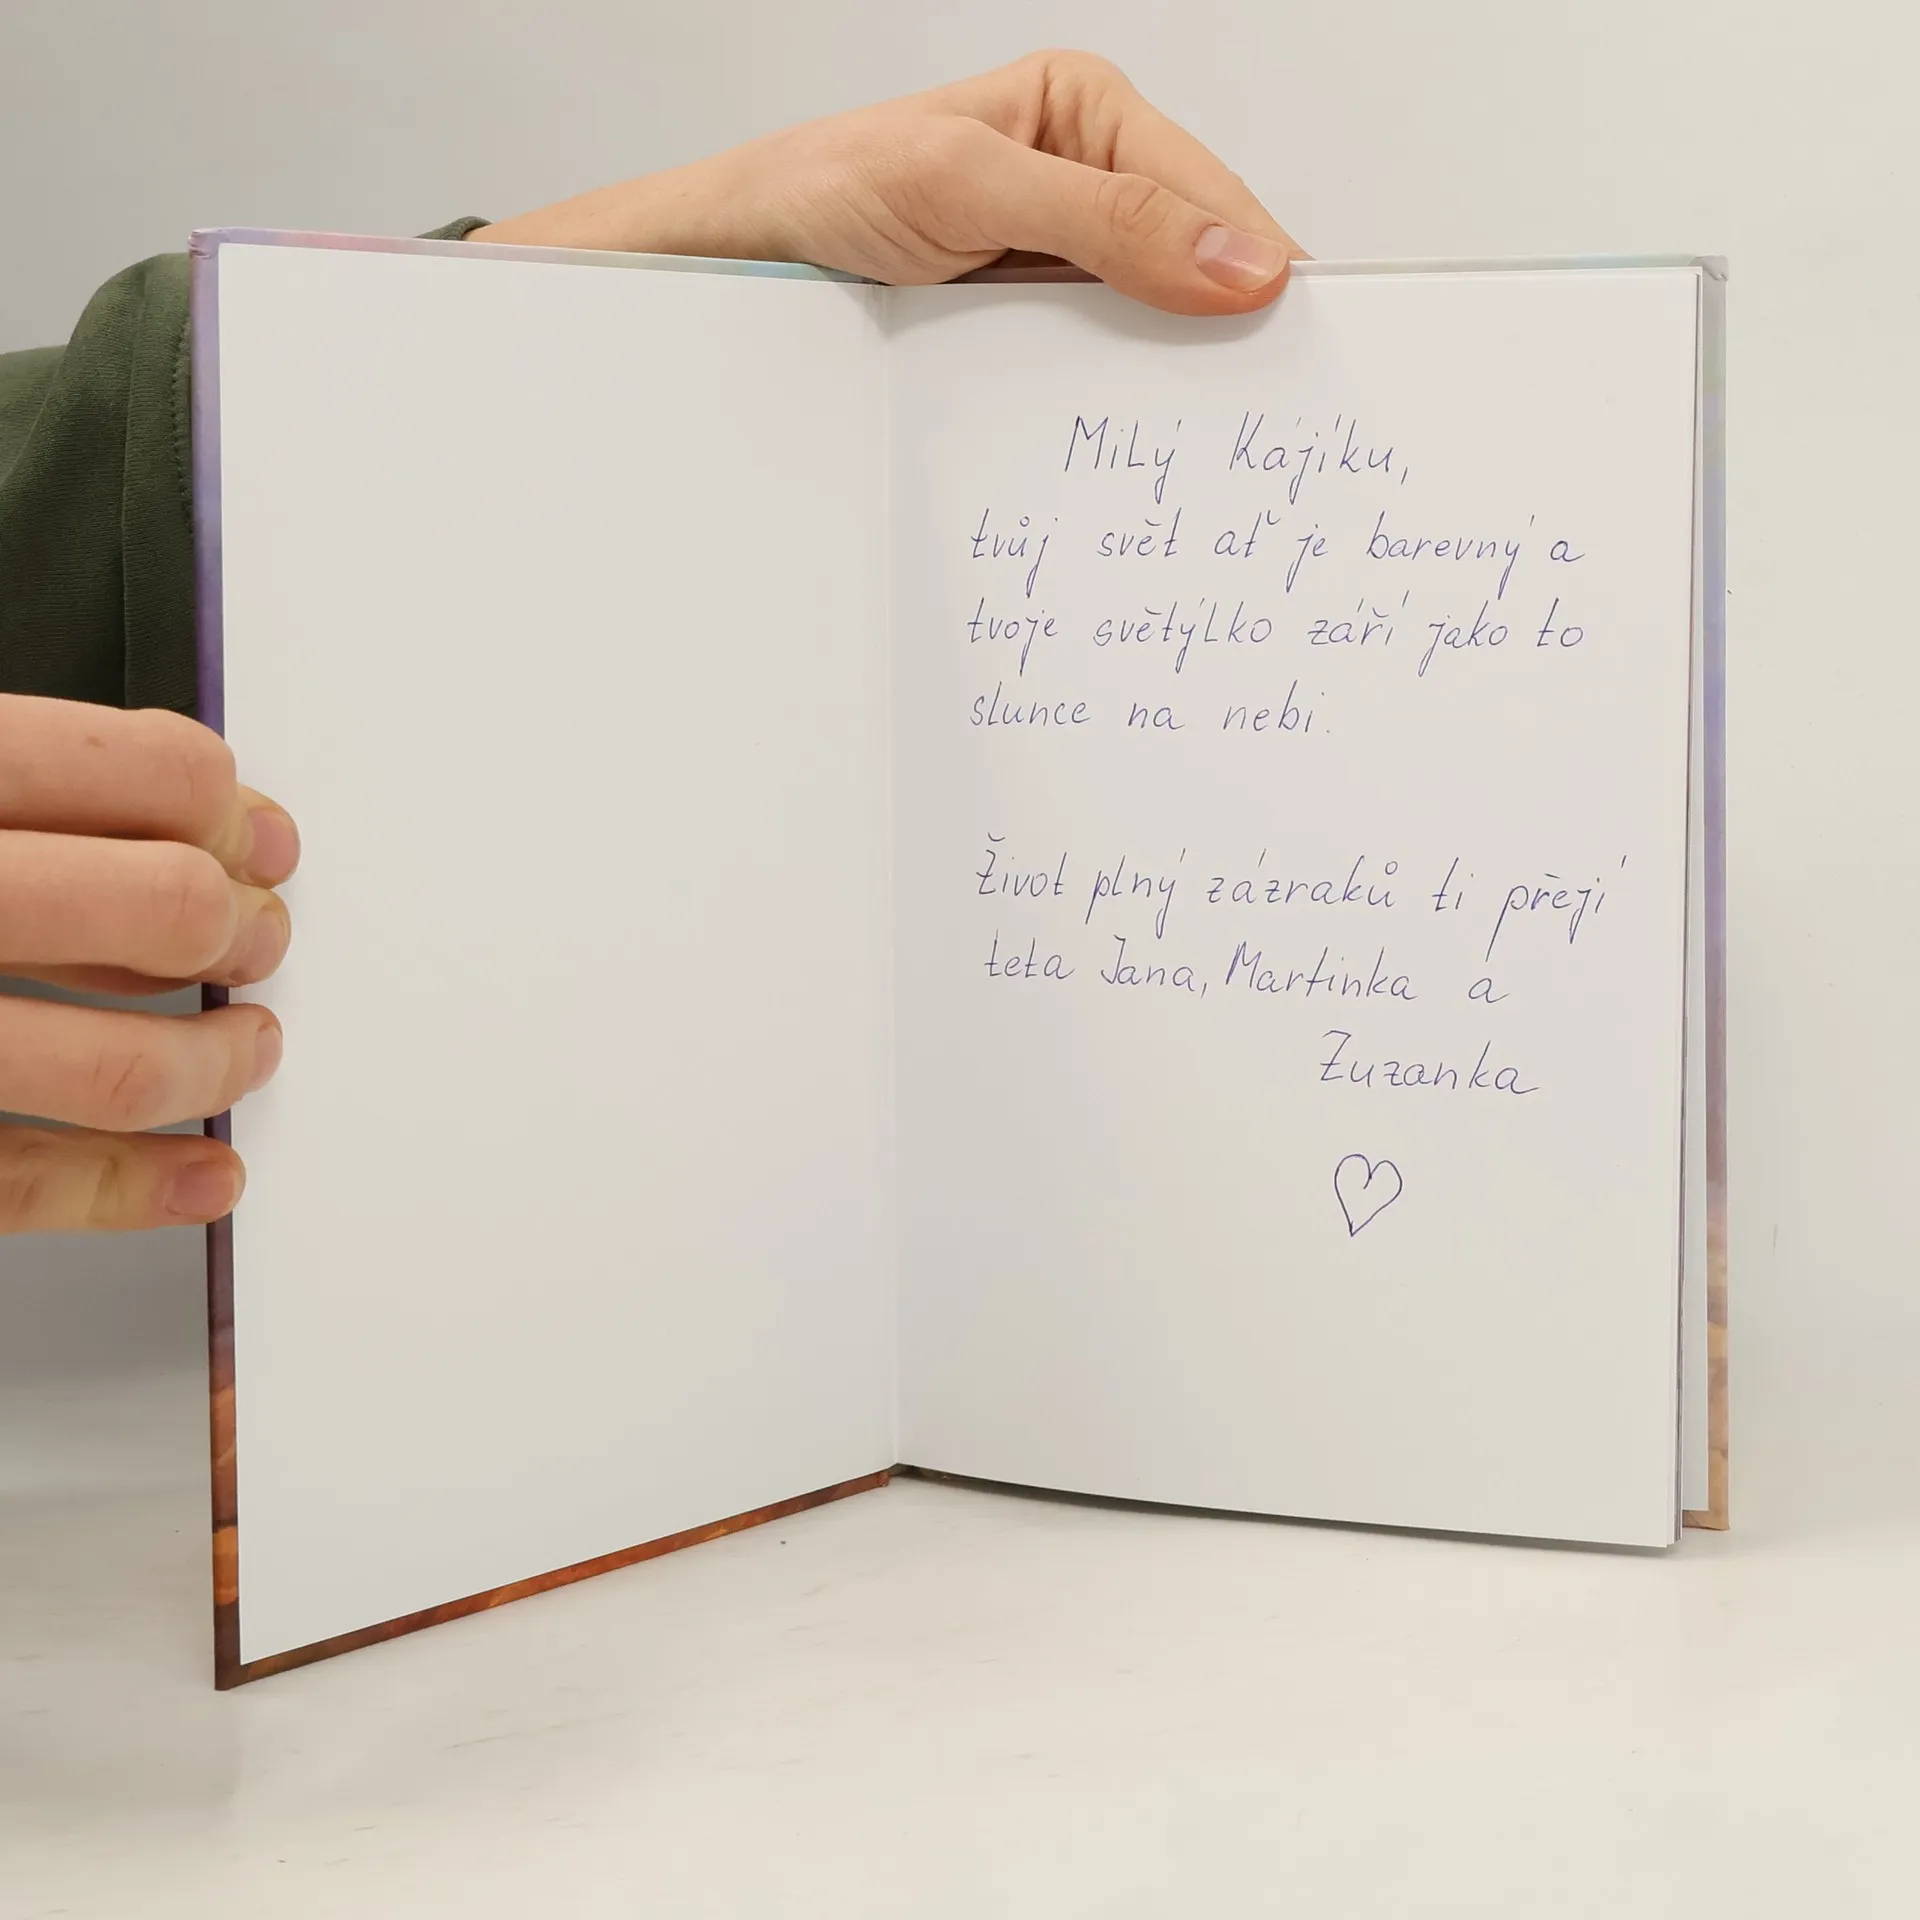 Milý Kájíku,
tvůj svět ať je barevný a
tvoje světýlko září jako to
slunce na nebi.
Život plný zázraků ti přejí
teta Jana, Martinka a
Zuzanka